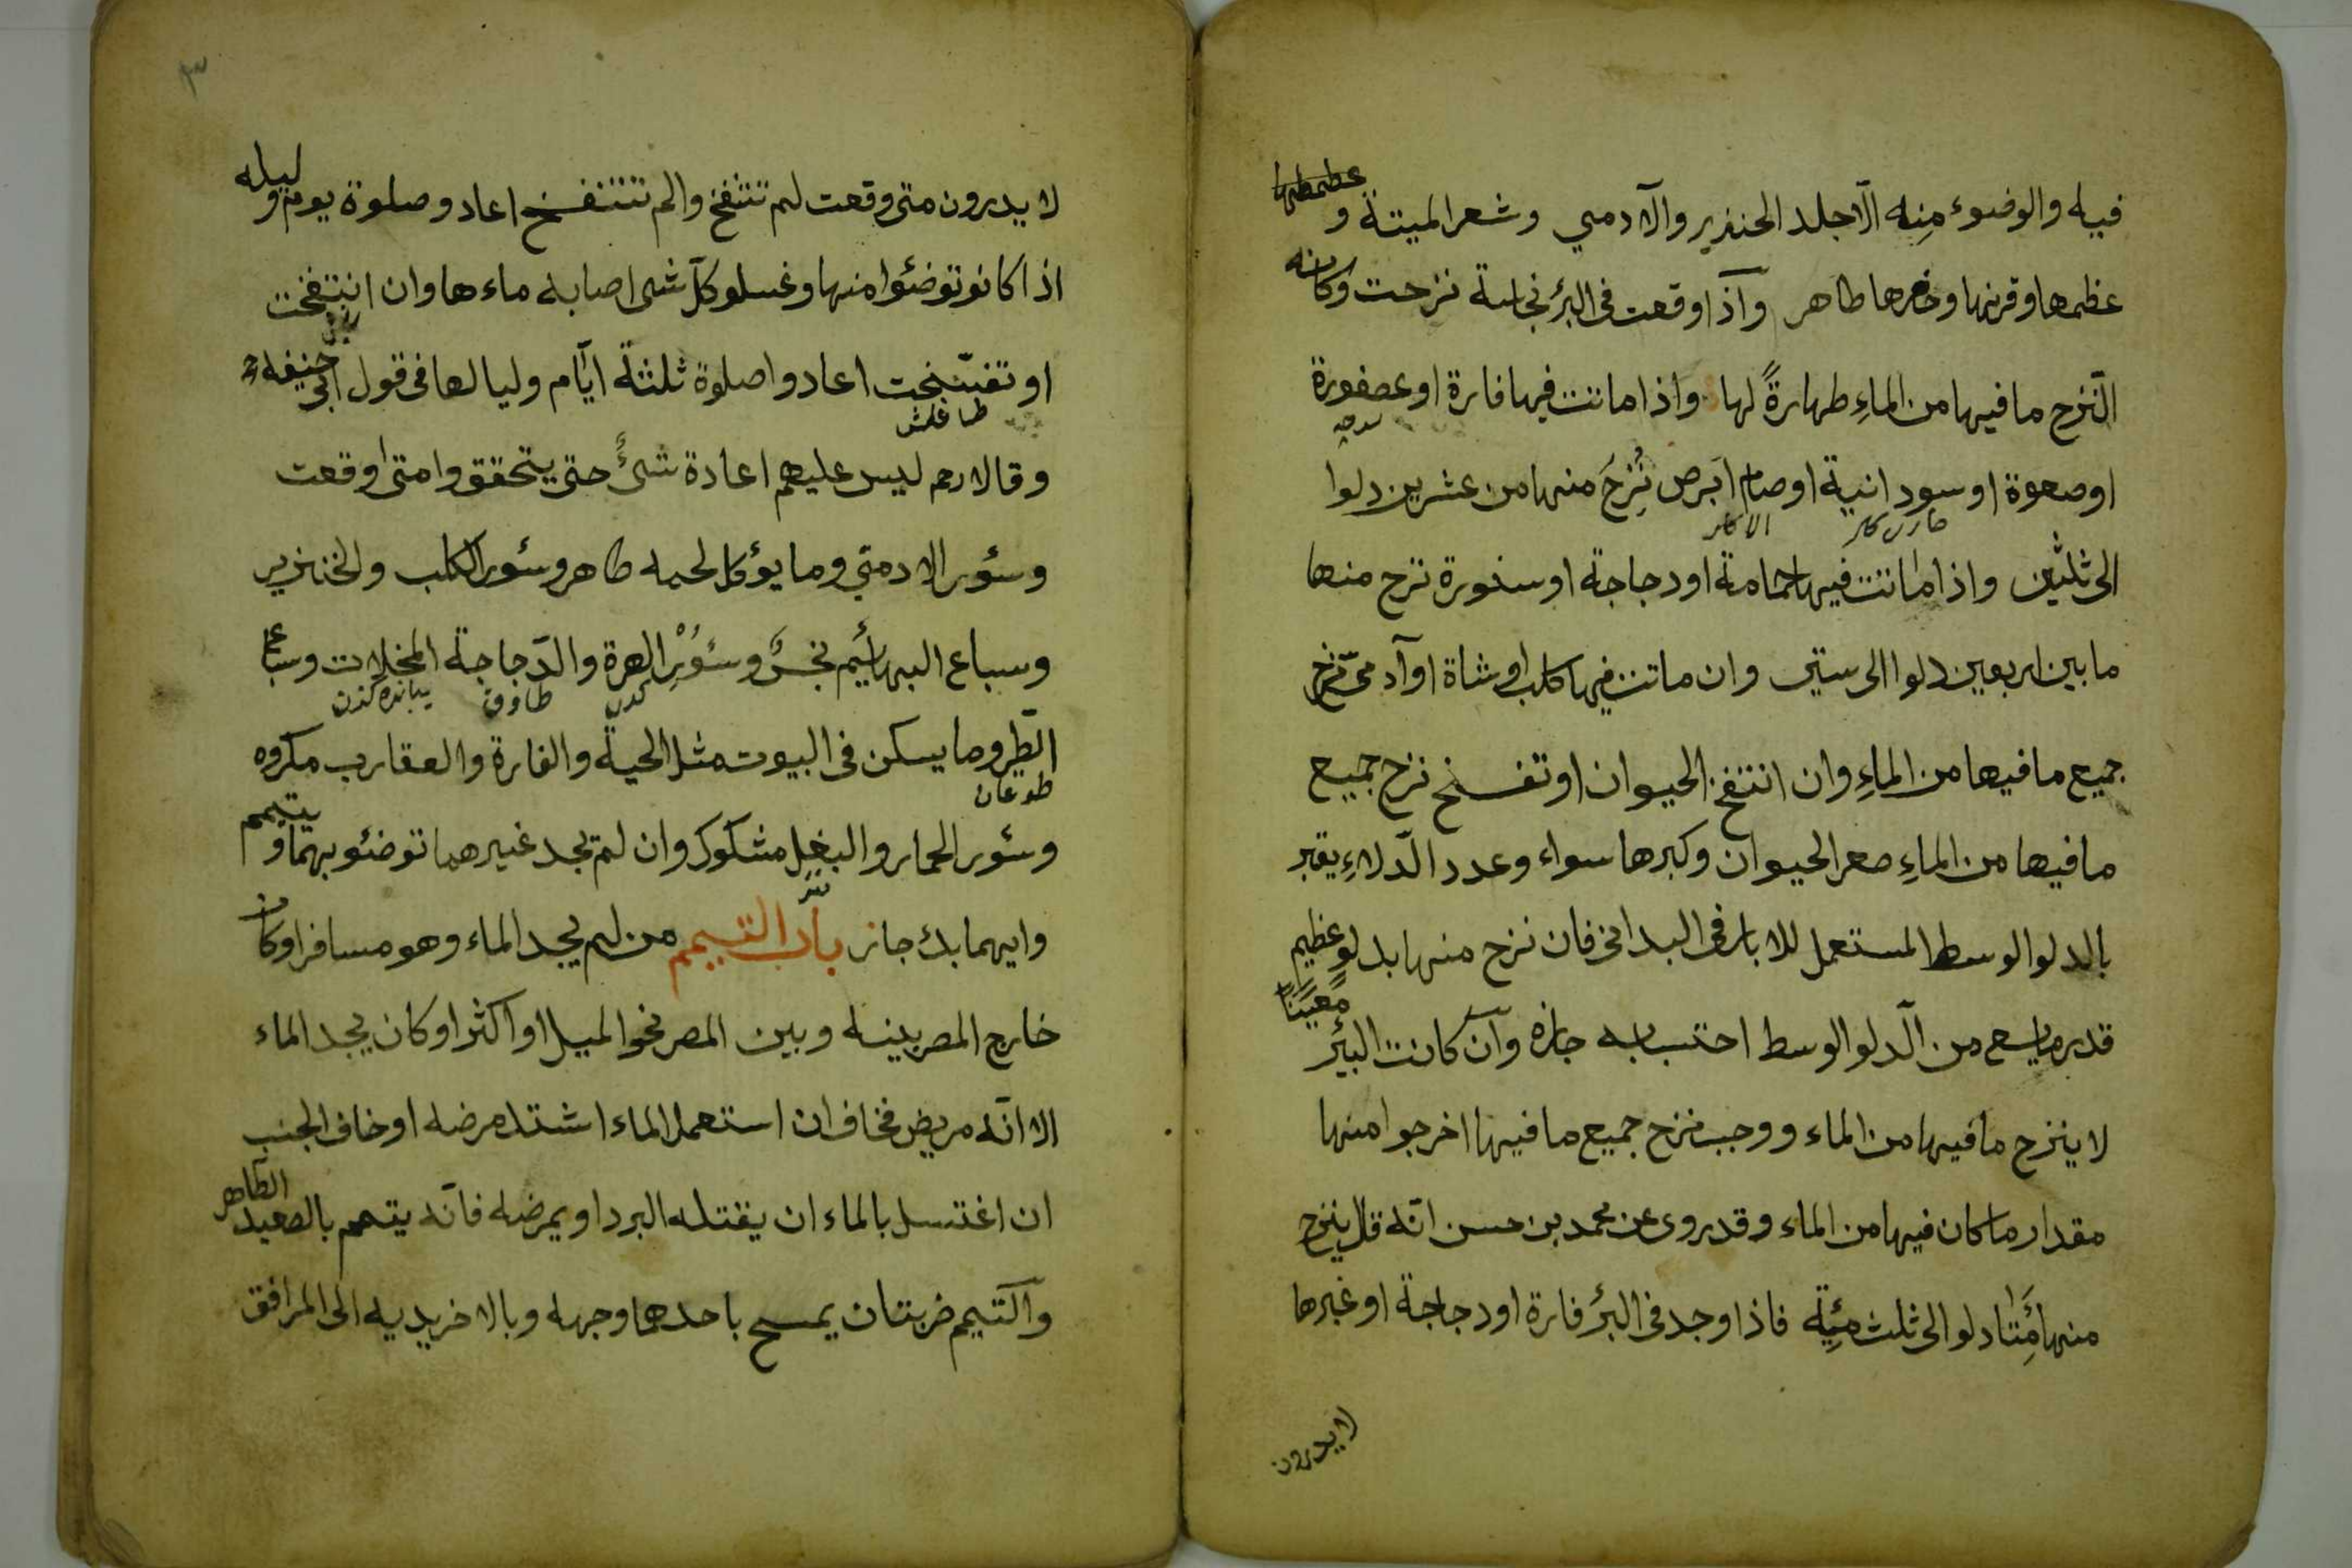 فيه والوضوء مِنه الّا جلد الخنزير والآدمي وشعر الميتة و
عظمها وقرنها وحافرها طاهر وآذا وقعت فى البئر نجاسة نزحت وكان
النّزح ما فيها من الماءِ طهارةً لها واذا ماتت فيها فارة او عصفورة
او صعوة او سودانية او صام ابَرص نُزِحَ منها من عشرين دلوا
الى ثلثين واذا ماتت فيها حمامة اودجاجة او سنورة نزح منها
ما بين اربعين دلوا الى ستين وان ماتت فيها كلب او شاة او آدمىّ نزح
جميع ما فيها من الماءِ وان انتفخ الحيوان او تفسخ نزح جميع
ما فيها من الماءِ صغر الحيوان وكبرها سواء وعدد الدّلاءِ يعتبر
بالدلو الوسط المستعمل للابار فى البدان فان نزح منها بدلو عظيم
قدر ما يسع من الّدلو الوسط احتسب به جازه وآن كانت البئر معيَناً
لا ينزح ما فيها من الماء ووجب نزح جميع ما فيها اخرجوا منها
مقدار ما كان فيها من الماء وقد روى عن محمد بن حسن انّه قال ينزح
منها مَأِتا دلو الى ثلث مئِة فاذا وجد فى البئر فارة اودجاجة او غيرها
لا يدرون
٣
لا يدرون متى وقعت لم تنتفخ والم تتنفسخ اعادو صلوة يوم وليله
اذا كانو توضئوا منها وغسلو كلّ شى اصابه ماءها وان انتفخت
او تفسّخت اعادوا صلوة ثلثة ايّام وليالها فى قول ابى حنيفه
وقالا رحم ليس عليهم اعادة شىءٍ حتى يتحققوا متى وقعت
وسئور الادمىّ وما يؤكل لحمه طاهر وسئور الكلب والخنزير
وسباع البهائيم نجسٌ وسئور الهرة والدّجاجة المخلات وسباع
الطّير وما يسكن فى البيوت مثل الحية والفارة والعقارب مكروه
وسئور الحمار والبغل مشكوك وان لم يجد غيرهما توضئو بهما ويتيمم
وايهما بدك جاز بابُ التيمم من لم يجد الماء وهو مسافر او كان
خارج المصر بينه وبين المصر نحو الميل او اكثر او كان يجد الماء
الا انّه مريض فخاف ان استعمل الماء اشتد مرضه او خاف الجنب
ان اغتسل بالماء ان يقتله البرد او يمرضه فانّه يتمم بالصعيد الطّاهر
وآلتيمم ضربتان يمسح باحدهما وجهه وبالاخر يديه الى المرافق